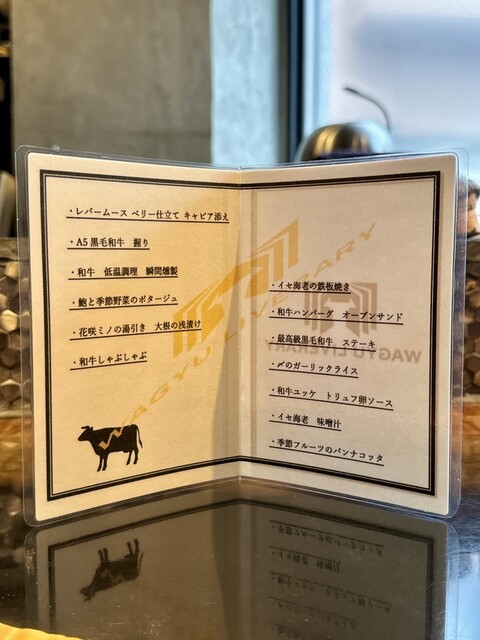 ・レバームース ベリー仕立て キャビア添え
・A5 黒毛和牛 握り
・和牛 低温調理 瞬間燻製
・鮑と季節野菜のポタージュ
・花咲ミノの湯引き 大根の浅漬け
・和牛しゃぶしゃぶ
WAGYU LIVERARY
・イセ海老の鉄板焼き
・和牛ハンバーグ オープンサンド
・最高級黒毛和牛 ステーキ
・〆のガーリックライス
・和牛ユッケ トリュフ卵ソース
・イセ海老 味噌汁
・季節フルーツのパンナコッタ
WAGYU LIVERARY